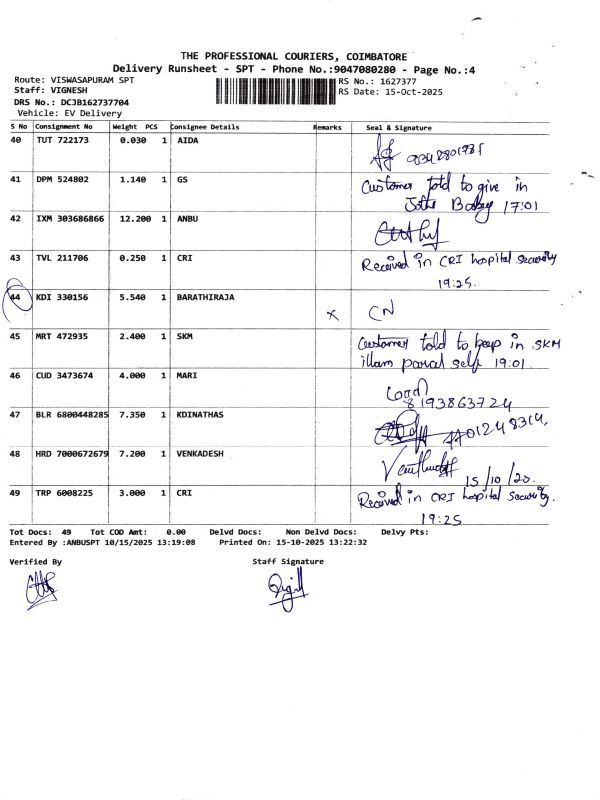 THE PROFESSIONAL COURIERS, COIMBATORE
Delivery Runsheet - SPT - Phone No.:9047080280 - Page No.:4
Route: VISWASAPURAM SPT
RS No.: 1627377
Staff: VIGNESH
RS Date: 15-Oct-2025
DRS No.: DCJB162737704
Vehicle: EV Delivery
S No Consignment No Weight PCS Consignee Details Remarks Seal & Signature
40 TUT 722173 0.030 1 AIDA
41 DPM 524802 1.140 1 GS Customer told to give in
17:01
42 IXM 303686866 12.200 1 ANBU
43 TVL 211706 0.250 1 CRI Received in CRI hospital security
19:25.
44 KDI 330156 5.540 1 BARATHIRAJA x CN
45 MRT 472935 2.400 1 SKM Customer told to keep in SKM
illam parcal self 19:01
46 CUD 3473674 4.000 1 MARI
8193863724
47 BLR 6800448285 7.350 1 KDINATHAS
48 HRD 7000672679 7.200 1 VENKADESH
49 TRP 6008225 3.000 1 CRI Received in CRI hospital security.
19:25
Tot Docs: 49 Tot COD Amt: 0.00 Delvd Docs: Non Delvd Docs: Delvy Pts:
Entered By :ANBUSPT 10/15/2025 13:19:08 Printed On: 15-10-2025 13:22:32
Verified By Staff Signature